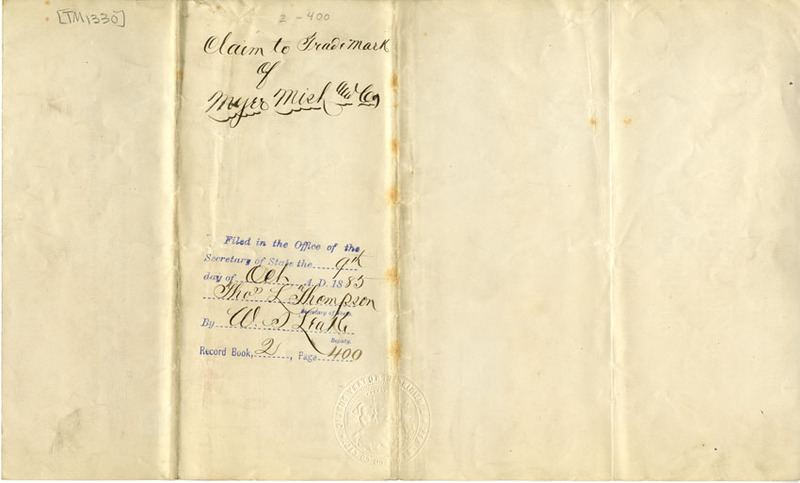 [TM1330]
2-400
Claim to Trademark
of
Myer Mish and Co,
Filed in the Office of the
Secretary of State the 9th
day of Oct A. D. 1885
Thos L Thompson
Secretary of State.
By W. S Leake
Deputy.
Record Book, 2, Page 400